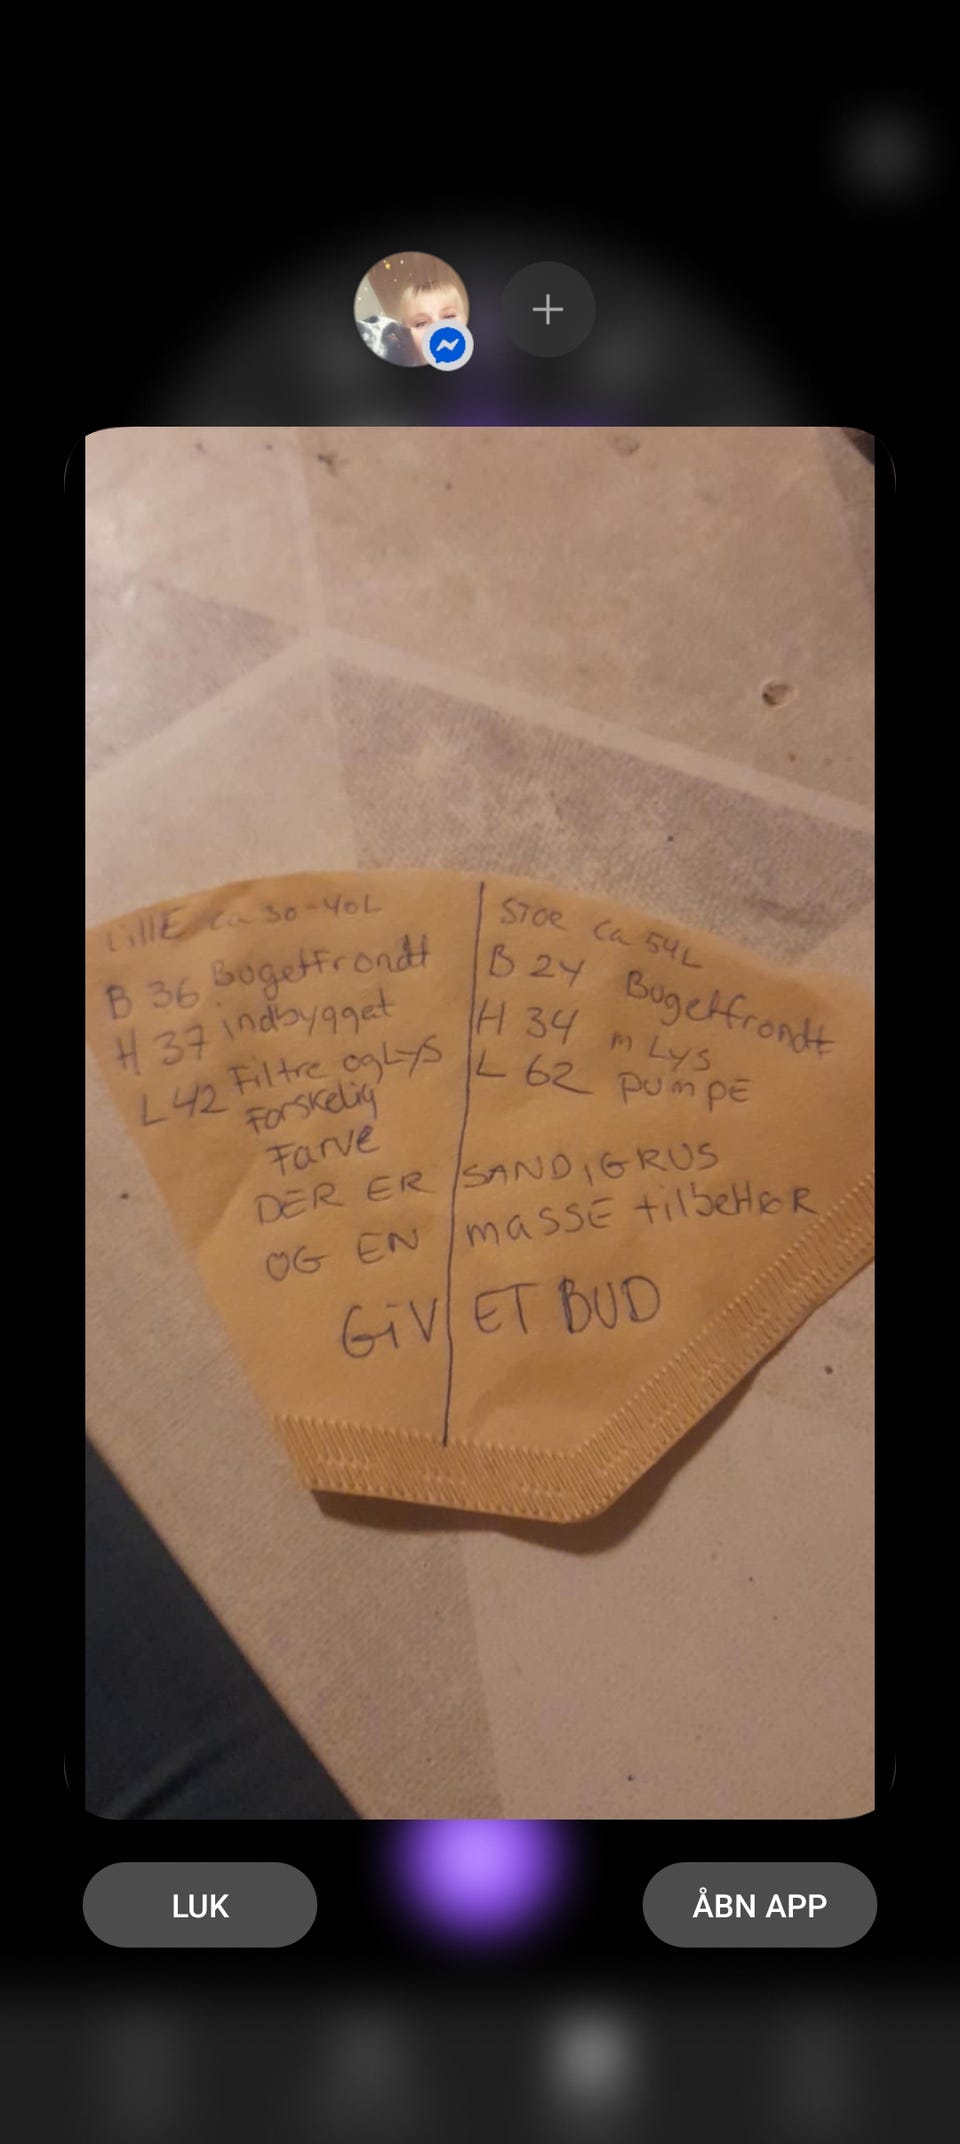 LillE ca 30-40L
B 36 Bugetfrondt
H 37 indbygget
L 42 Filtre og Lys
Forskelig
Farve
STOR ca 54L
B 24 Bugetfrondt
H 34 m Lys
L 62 pumpe
DER ER SAND, GRUS
OG EN masse tilbeHøR
GiV ET BUD
LUK
ÅBN APP